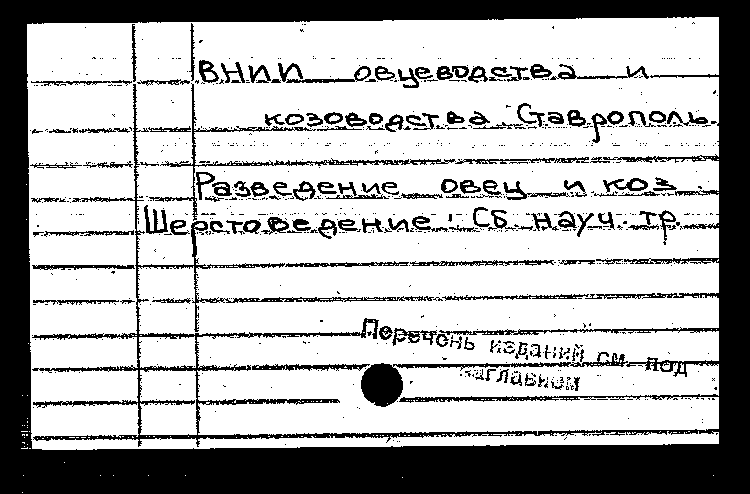 ВНИИ овцеводства и
козоводства. Ставрополь.
Разведение овец и коз.
Шерстоведение: Сб. науч. тр.
Перечень изданий см. под
заглавием